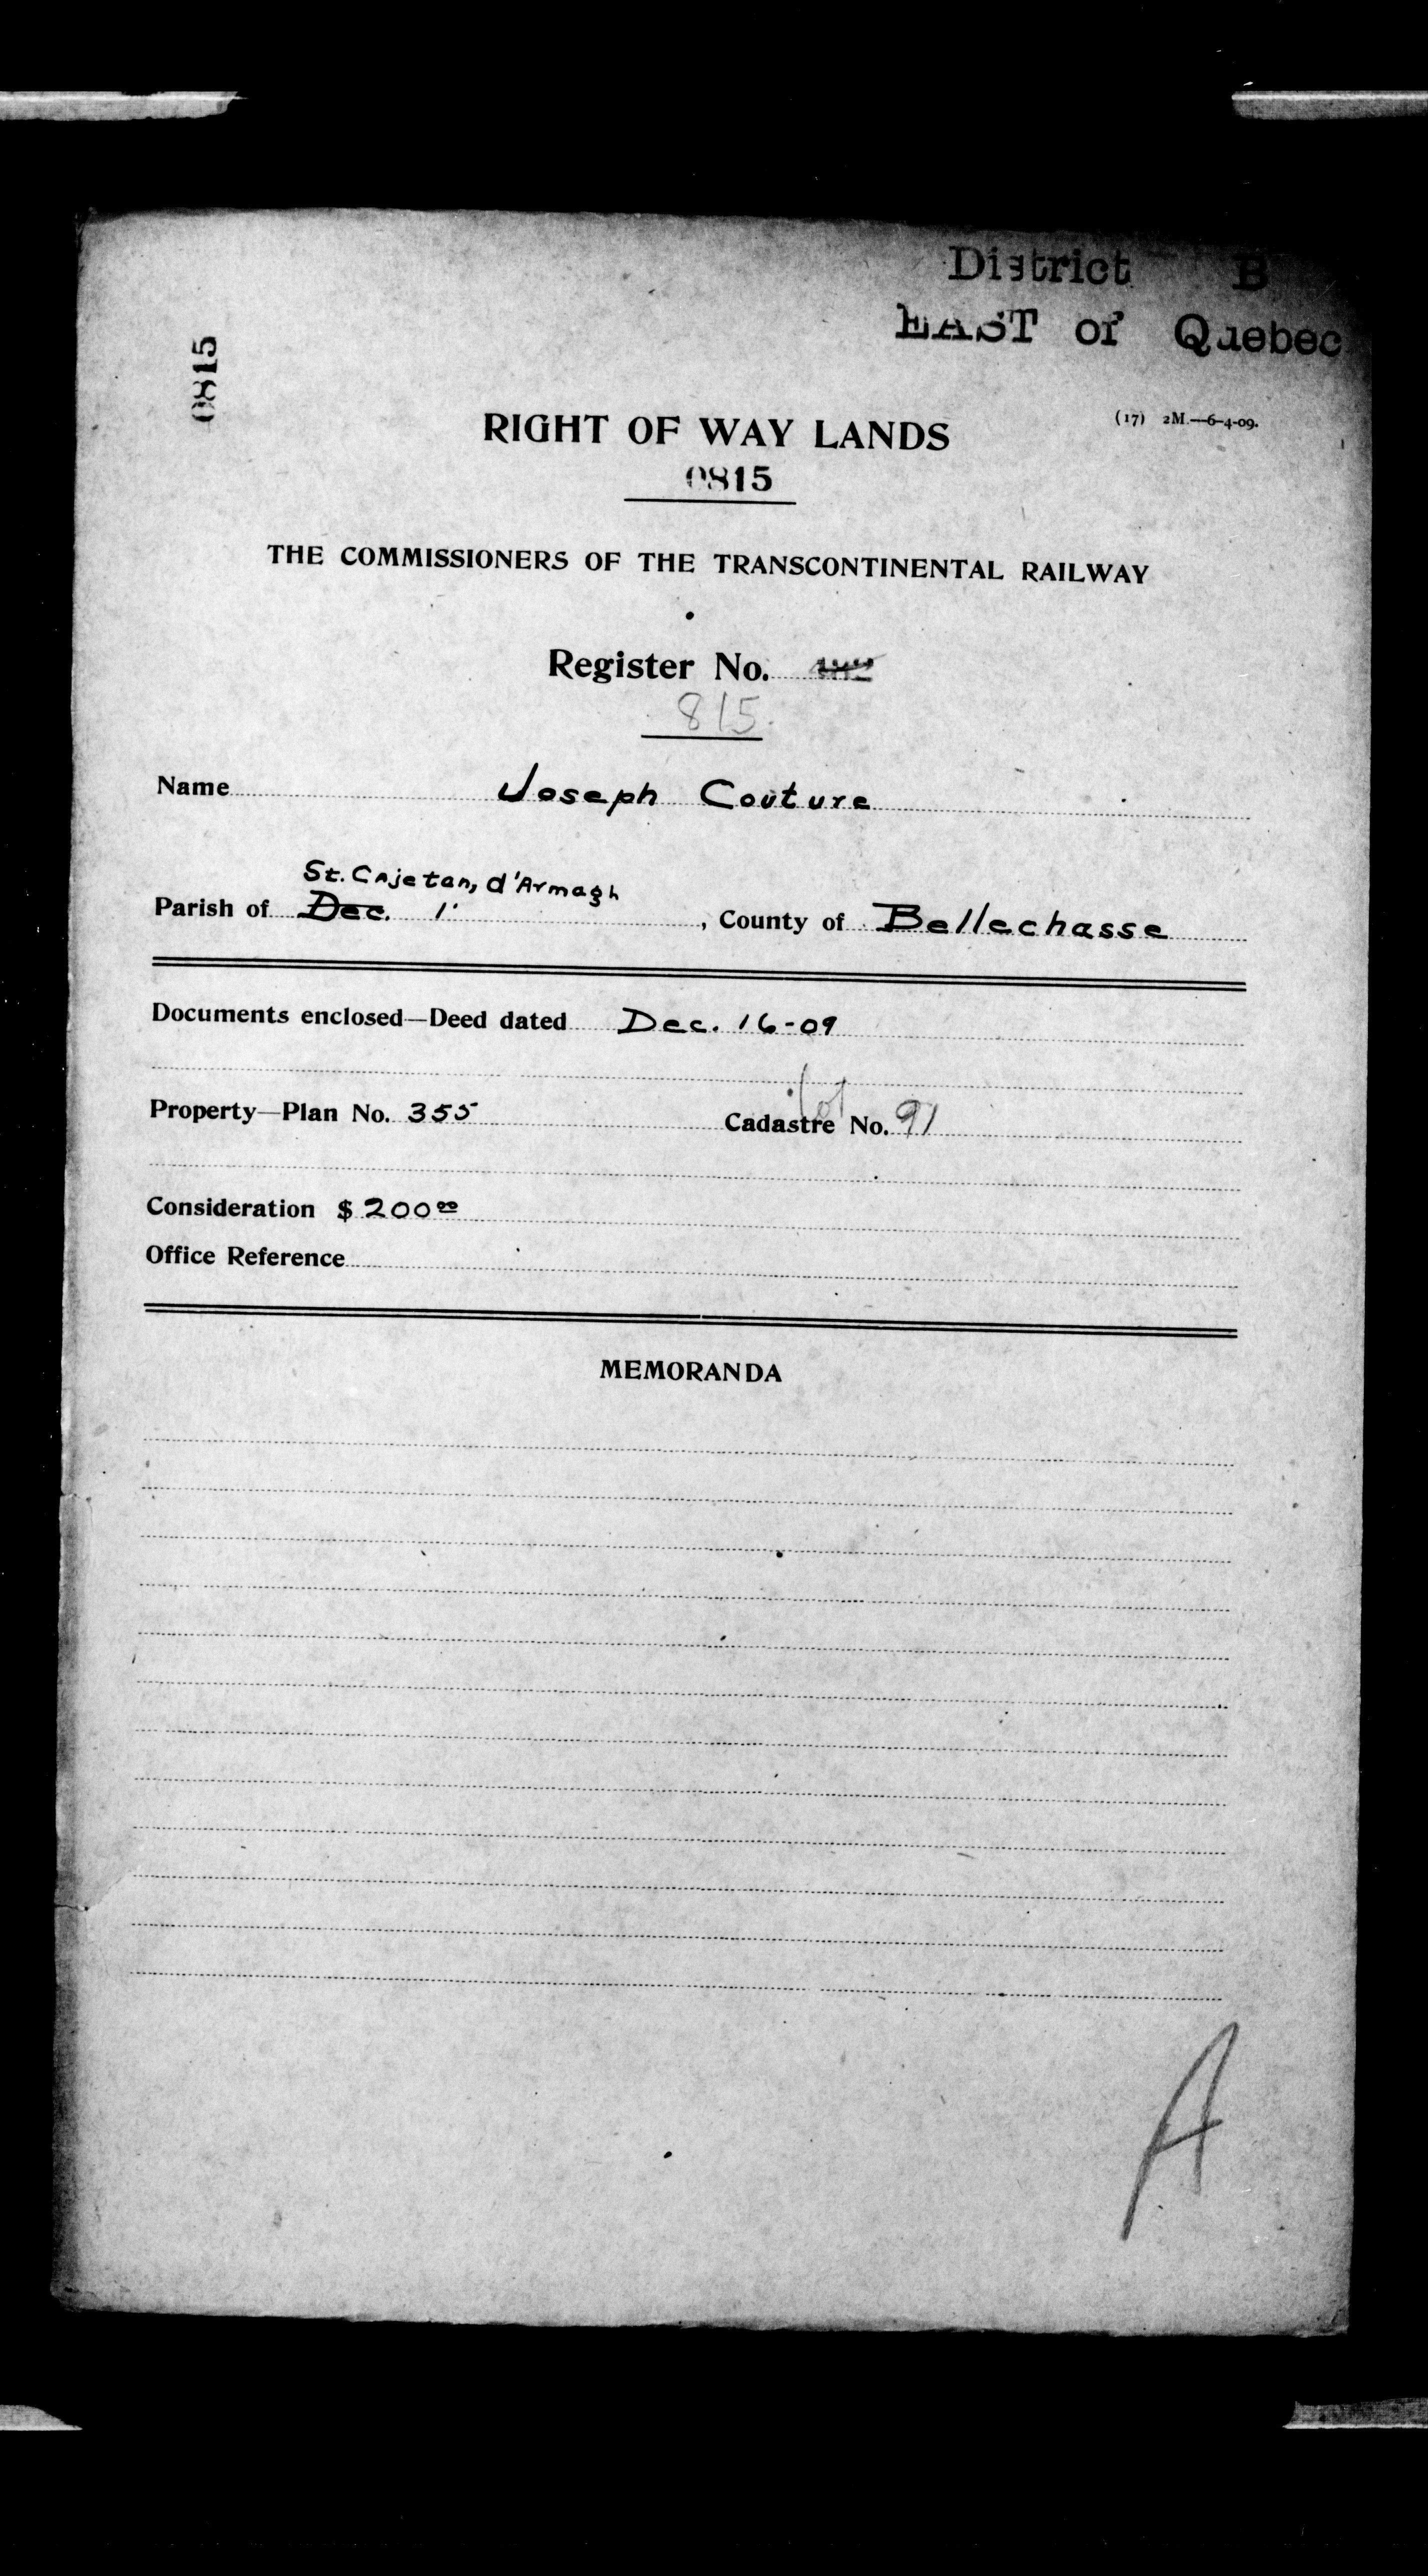 District B
EAST of Quebec
0815
(17) 2M.—6-4-09.
RIGHT OF WAY LANDS
0815
THE COMMISSIONERS OF THE TRANSCONTINENTAL RAILWAY
Register No.
815.
Name Joseph Couture
St. Cajetan, d'Armagh
Parish of Dec. 1 , County of Bellechasse
Documents enclosed—Deed dated Dec. 16-09
lot
Property—Plan No. 355 Cadastre No. 91
Consideration $ 200 00
Office Reference
MEMORANDA
A